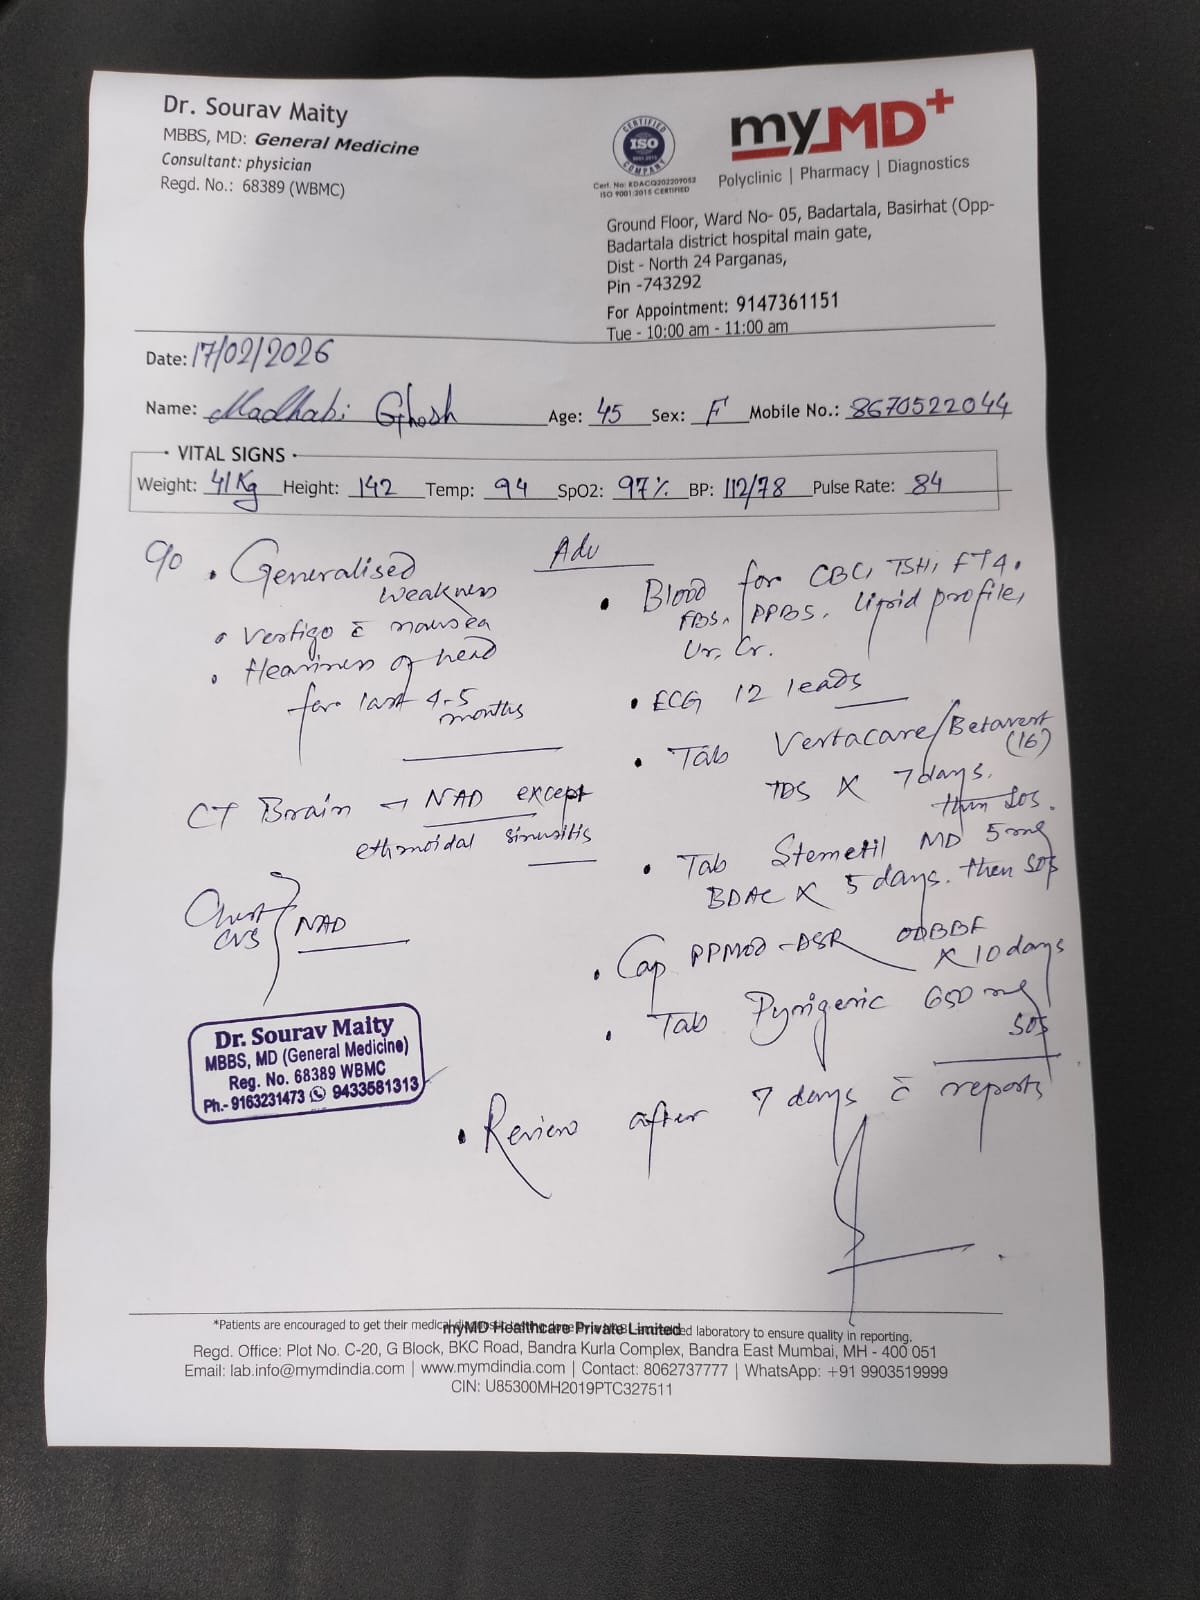 Dr. Sourav Maity
MBBS, MD: General Medicine
Consultant: physician
Regd. No.: 68389 (WBMC)
CERTIFIED
ISO
9001:2015
COMPANY
Cert. No: KDACQ202209052
ISO 9001:2015 CERTIFIED
myMD+
Polyclinic | Pharmacy | Diagnostics
Ground Floor, Ward No- 05, Badartala, Basirhat (Opp-
Badartala district hospital main gate,
Dist - North 24 Parganas,
Pin -743292
For Appointment: 9147361151
Tue - 10:00 am - 11:00 am
Date: 17/02/2026
Name: Madhabi Ghosh Age: 45 Sex: F Mobile No.: 8670522044
VITAL SIGNS
Weight: 41Kg Height: 142 Temp: 94 SpO2: 97% BP: 112/78 Pulse Rate: 84
c/o • Generalised
weakness
• Vertigo c̄ nausea
• Heaviness of head
for last 4-5
months
CT Brain → NAD except
ethmoidal sinusitis
Chest
CVS } NAD
Adv
• Blood for CBC, TSH, FT4.
FBS. PPBS. lipid profile,
Ur, Cr.
• ECG 12 leads
• Tab Vertacare/Betavert
(16)
TDS X 7 days.
then SOS.
• Tab Stemetil MD 5 mg
BDAC X 5 days. then SOS
• Cap PPMOD-DSR ODBBF
X 10 days
• Tab Pyrigenic 650 mg
SOS
• Review after 7 days c̄ reports
Dr. Sourav Maity
MBBS, MD (General Medicine)
Reg. No. 68389 WBMC
Ph.- 9163231473 9433581313
*Patients are encouraged to get their medical ed laboratory to ensure quality in reporting.
myMD Healthcare Private Limited
Regd. Office: Plot No. C-20, G Block, BKC Road, Bandra Kurla Complex, Bandra East Mumbai, MH - 400 051
Email: lab.info@mymdindia.com | www.mymdindia.com | Contact: 8062737777 | WhatsApp: +91 9903519999
CIN: U85300MH2019PTC327511